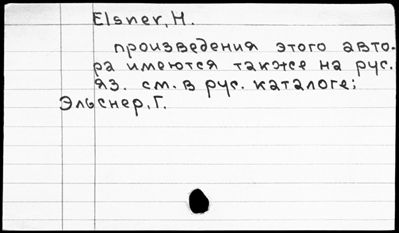 Elsner, H.
произведения этого авто-
ра имеются также на рус.
яз. см. в рус. каталоге;
Эльснер, Г.